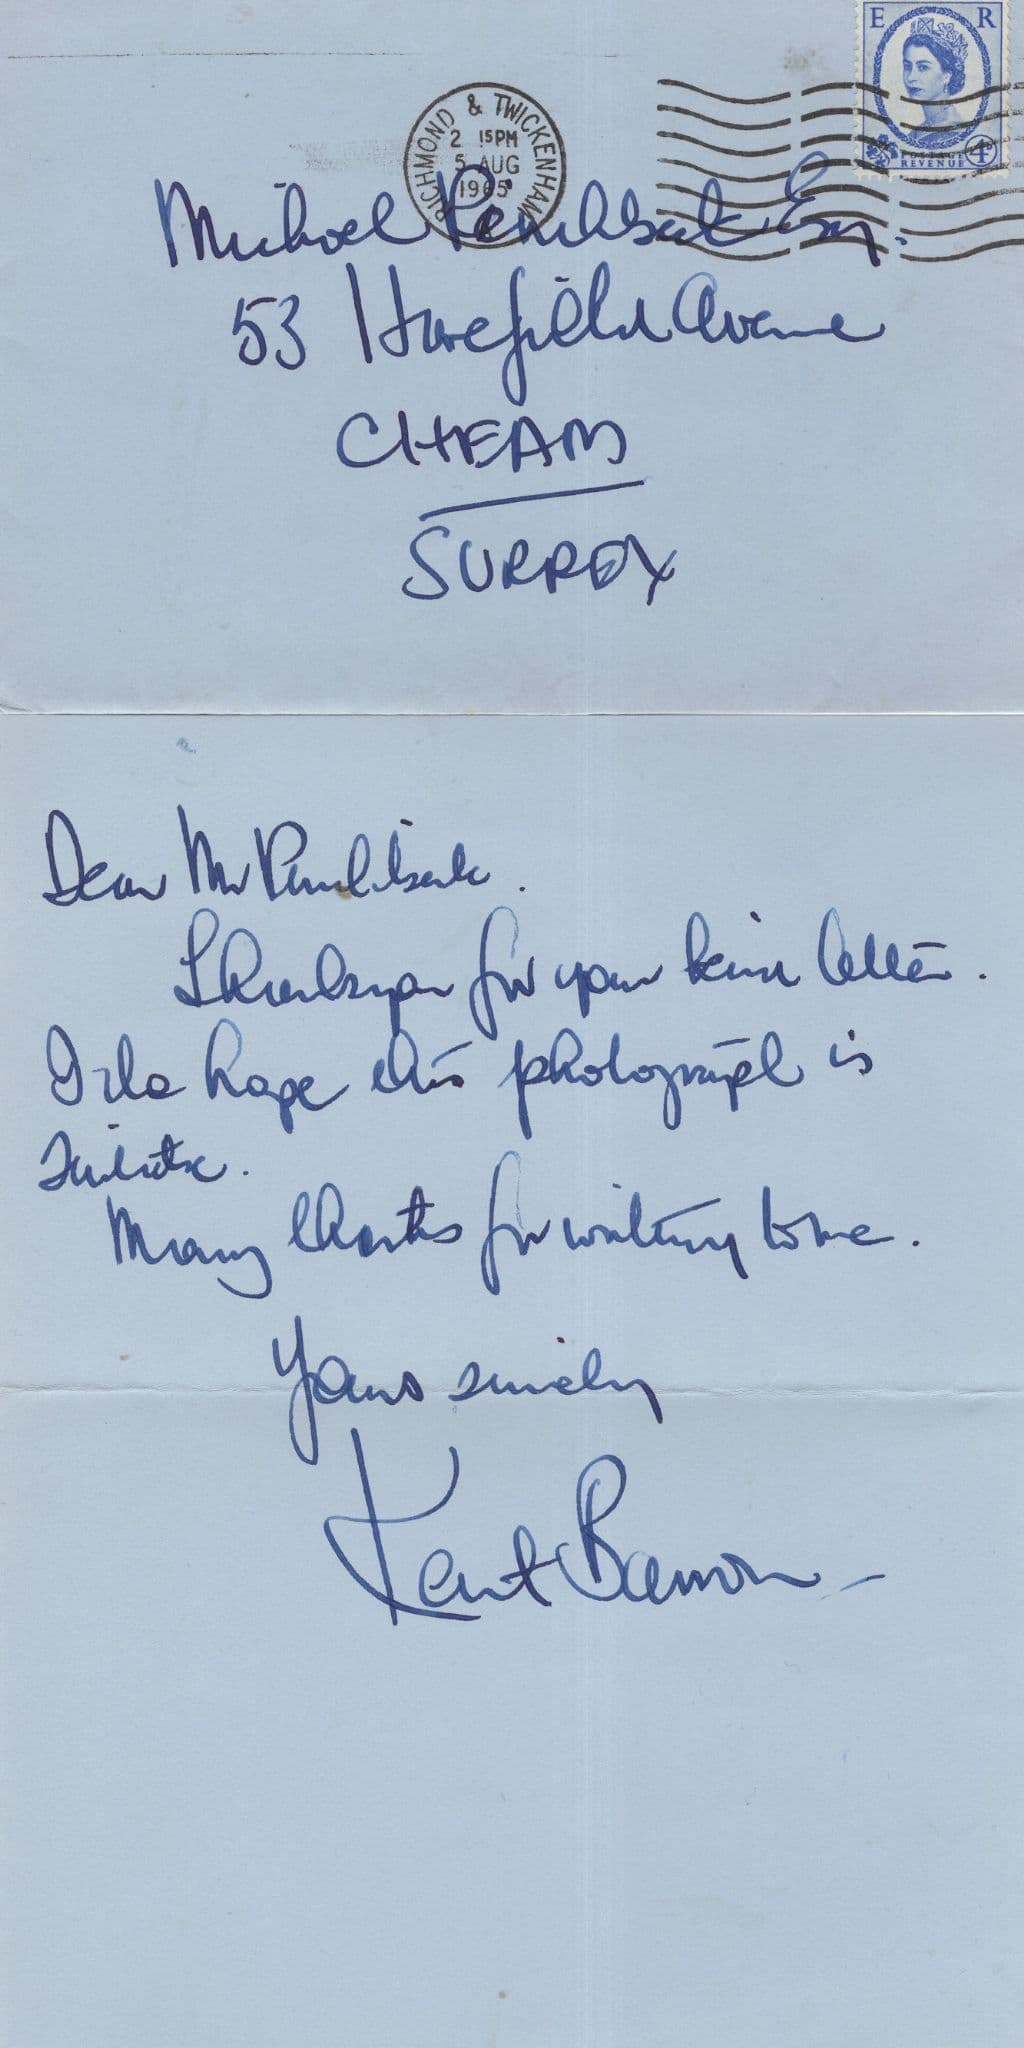 E R
POSTAGE
REVENUE 4D
RICHMOND & TWICKENHAM
2 15PM
5 AUG
1965
Michael Esq.
53 Harefield Avenue
CHEAM
SURREY
Dear Mr
Thankyou for your kind letter.
I do hope this photograph is
suitable.
Many thanks for writing to me.
Yours sincerely
Kent Barron